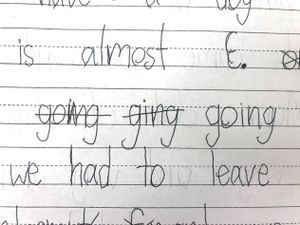 have a dog
is almost E.
going ging going
we had to leave